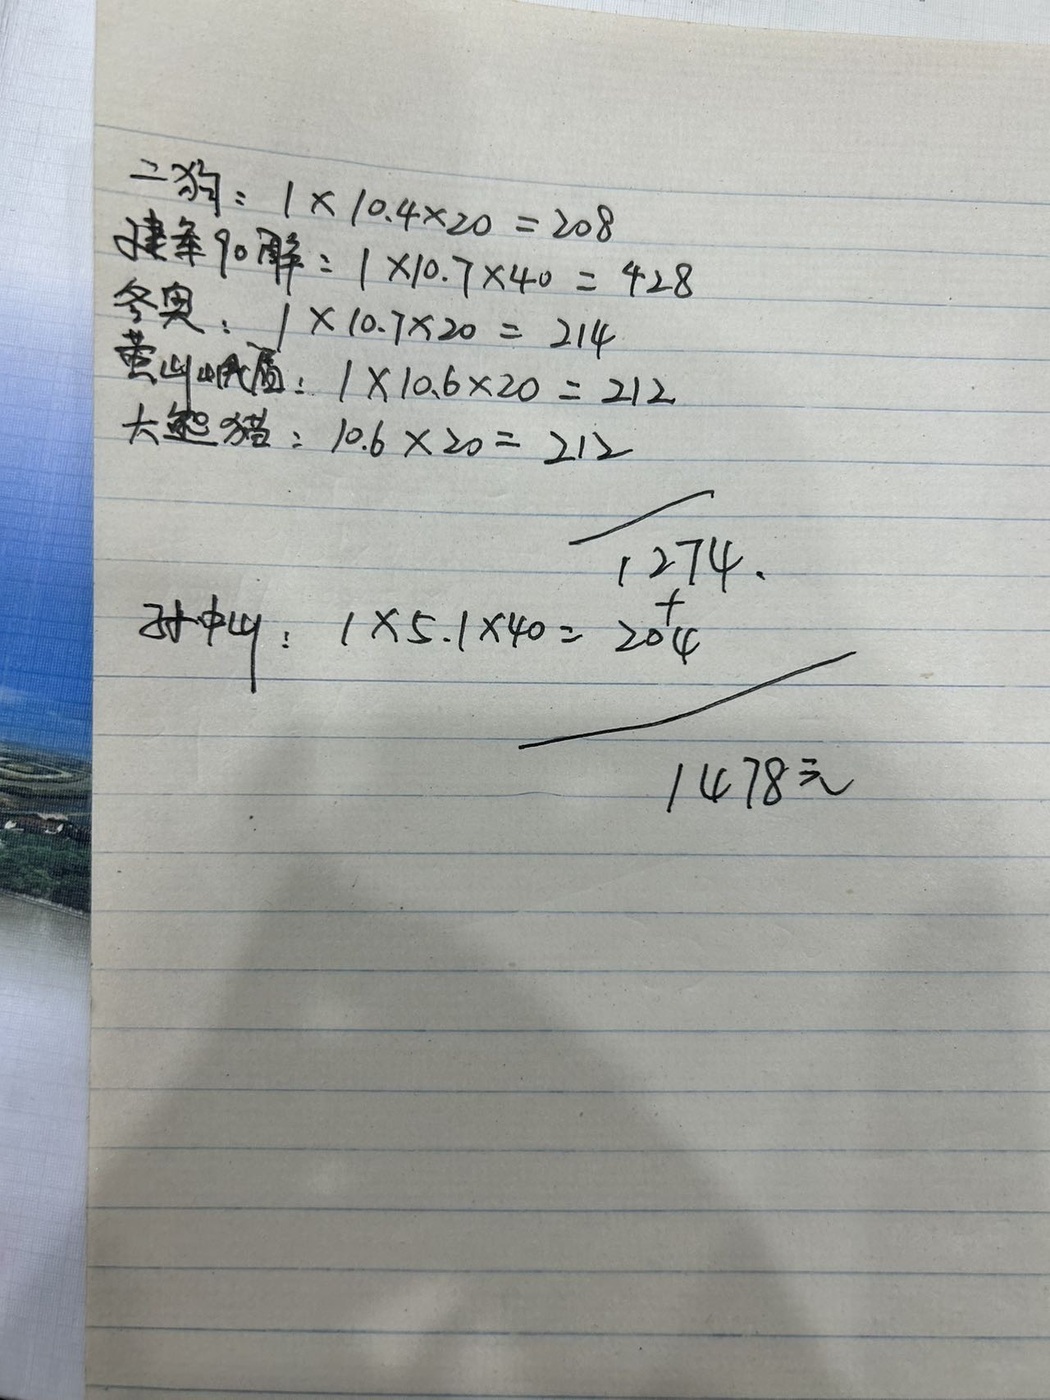 二狗：1×10.4×20=208
建军90周年：1×10.7×40=428
冬奥：1×10.7×20=214
黄山峨眉：1×10.6×20=212
大熊猫：10.6×20=212
1274.
+
孙中山：1×5.1×40=204
1478元